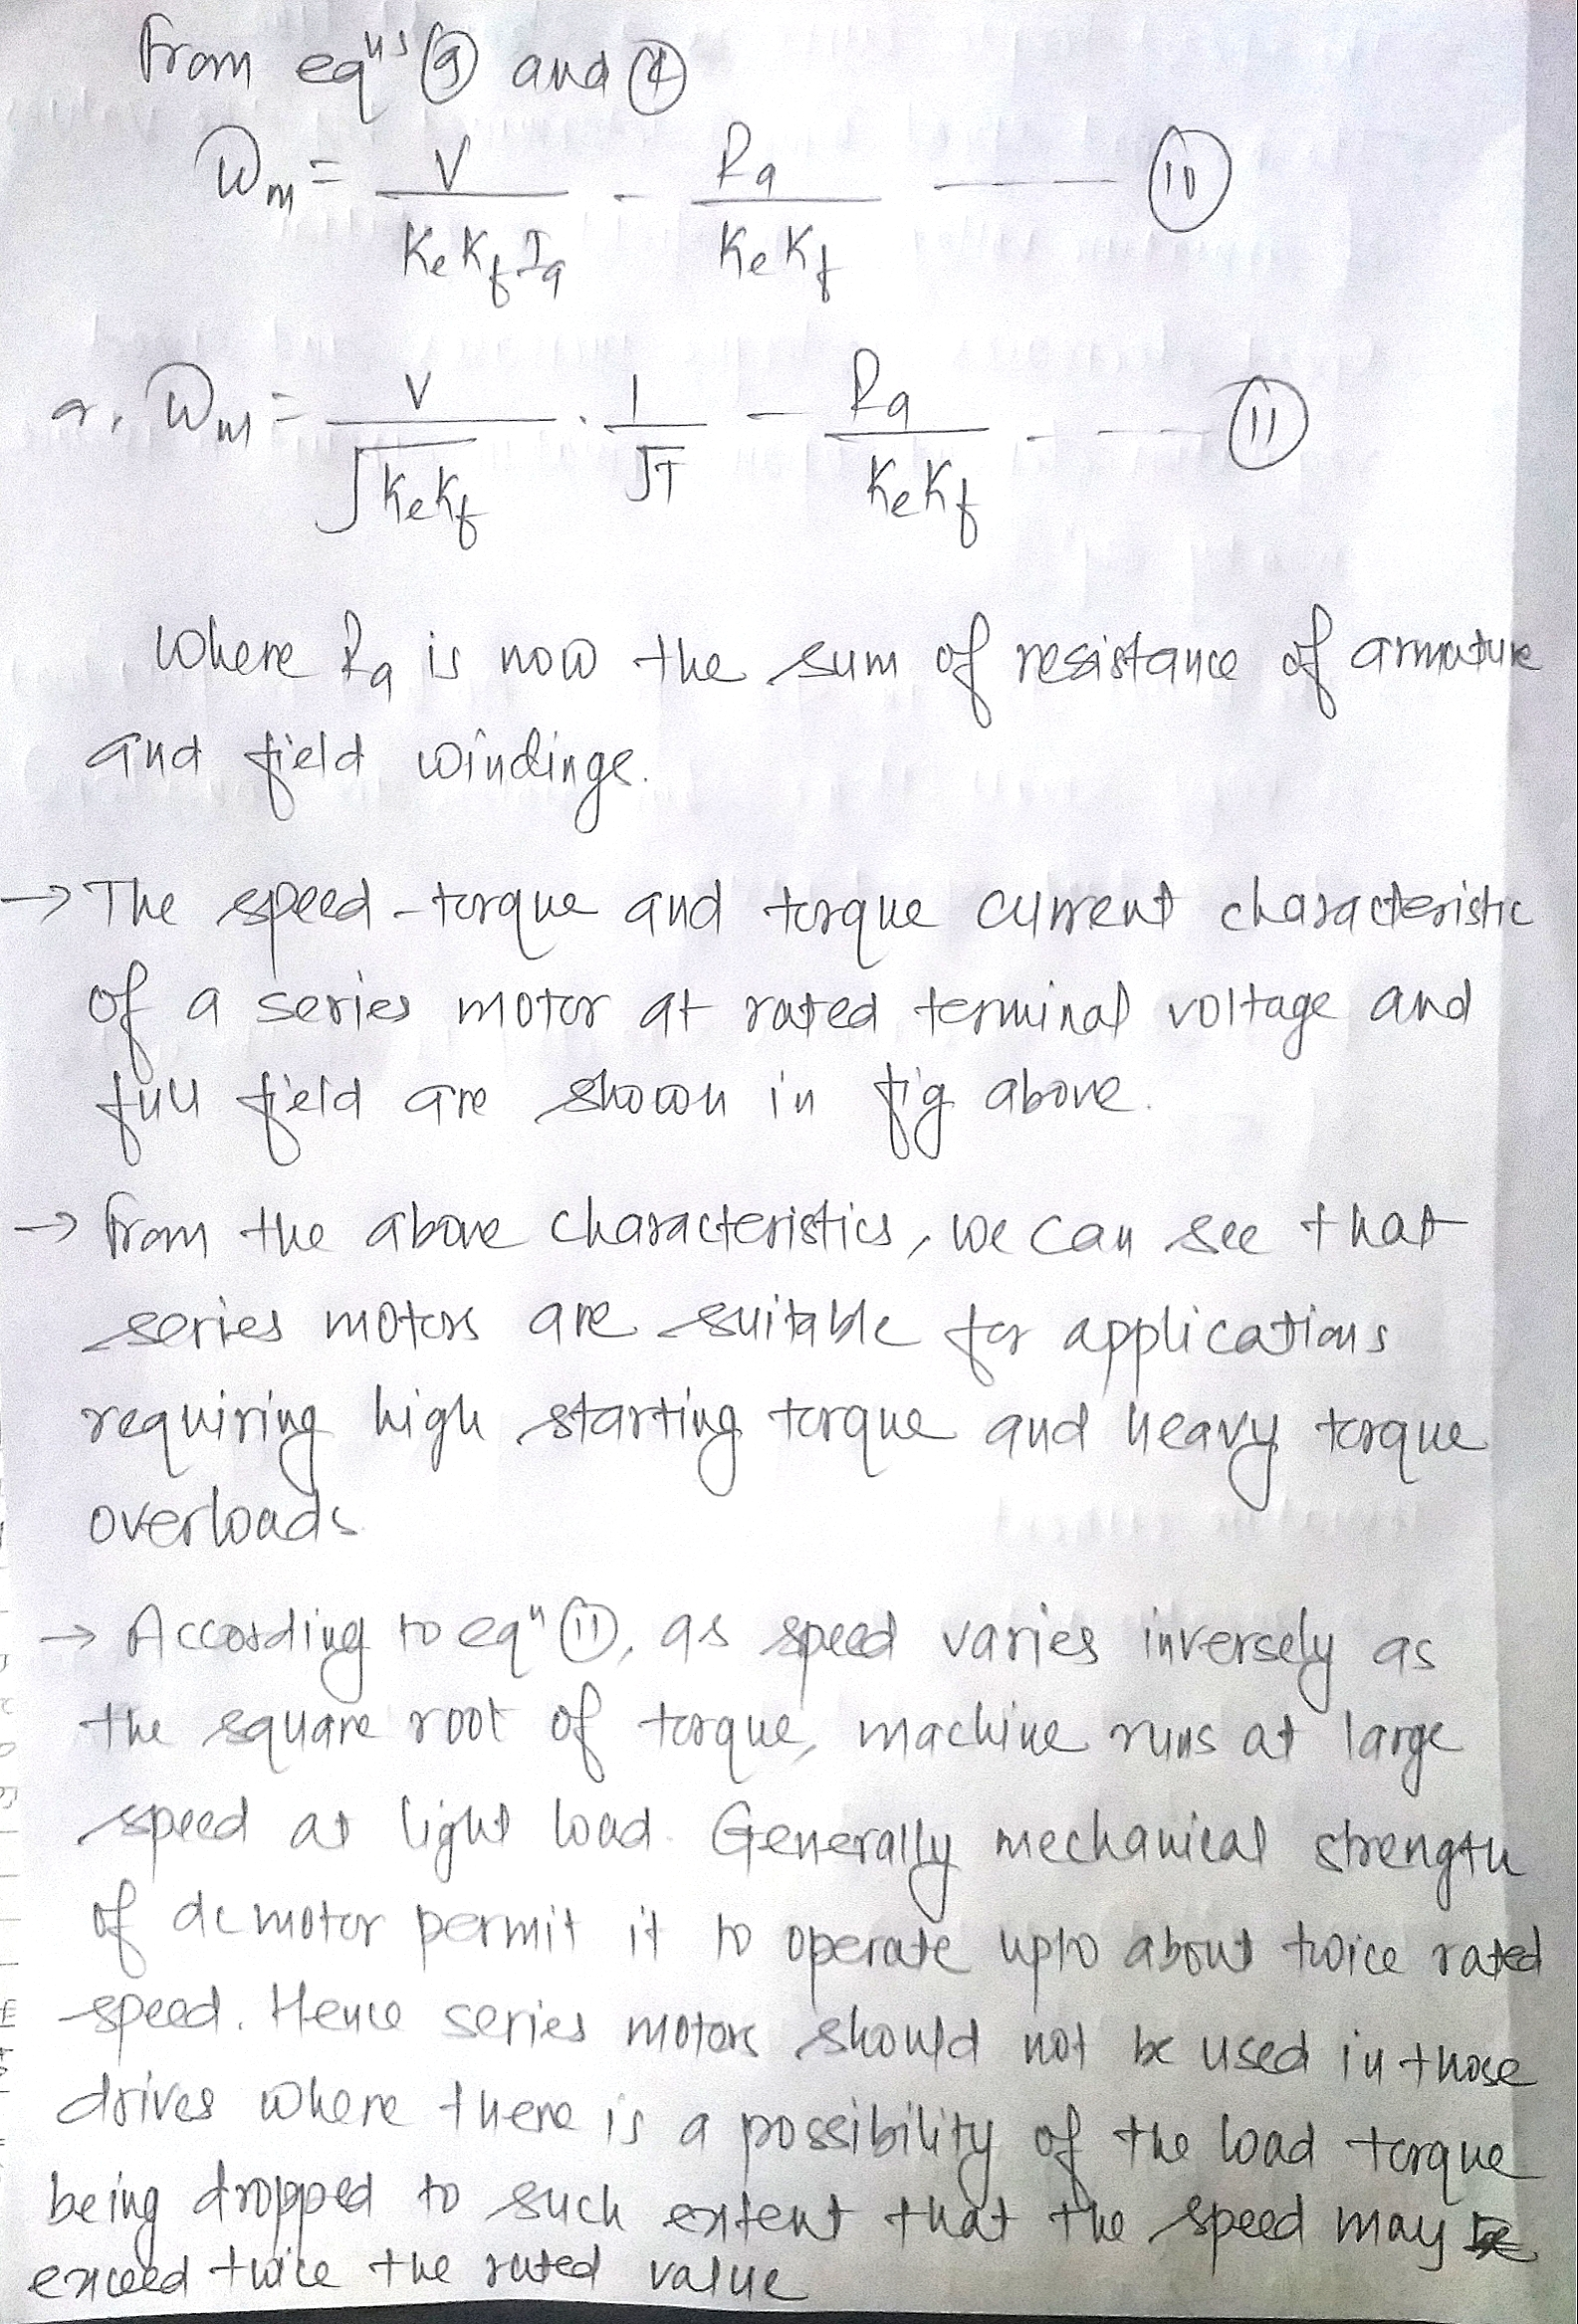 From eqⁿˢ ⑨ and ④
ωm = V / (Ke Kf Ia) - Ra / (Ke Kf) —— ⑩
or, ωm = V / √(Ke Kf) . 1 / √T - Ra / (Ke Kf) - —— ⑪
where Ra is now the sum of resistance of armature
and field windings.
→ The speed-torque and torque current characteristic
of a series motor at rated terminal voltage and
full field are shown in fig above.
→ From the above characteristics, we can see that
series motors are suitable for applications
requiring high starting torque and heavy torque
overloads
→ According to eqⁿ ⑪, as speed varies inversely as
the square root of torque, machine runs at large
speed at light load. Generally mechanical strength
of dc motor permit it to operate upto about twice rated
speed. Hence series motors should not be used in those
drives where there is a possibility of the load torque
being dropped to such extent that the speed may
exceed twice the rated value